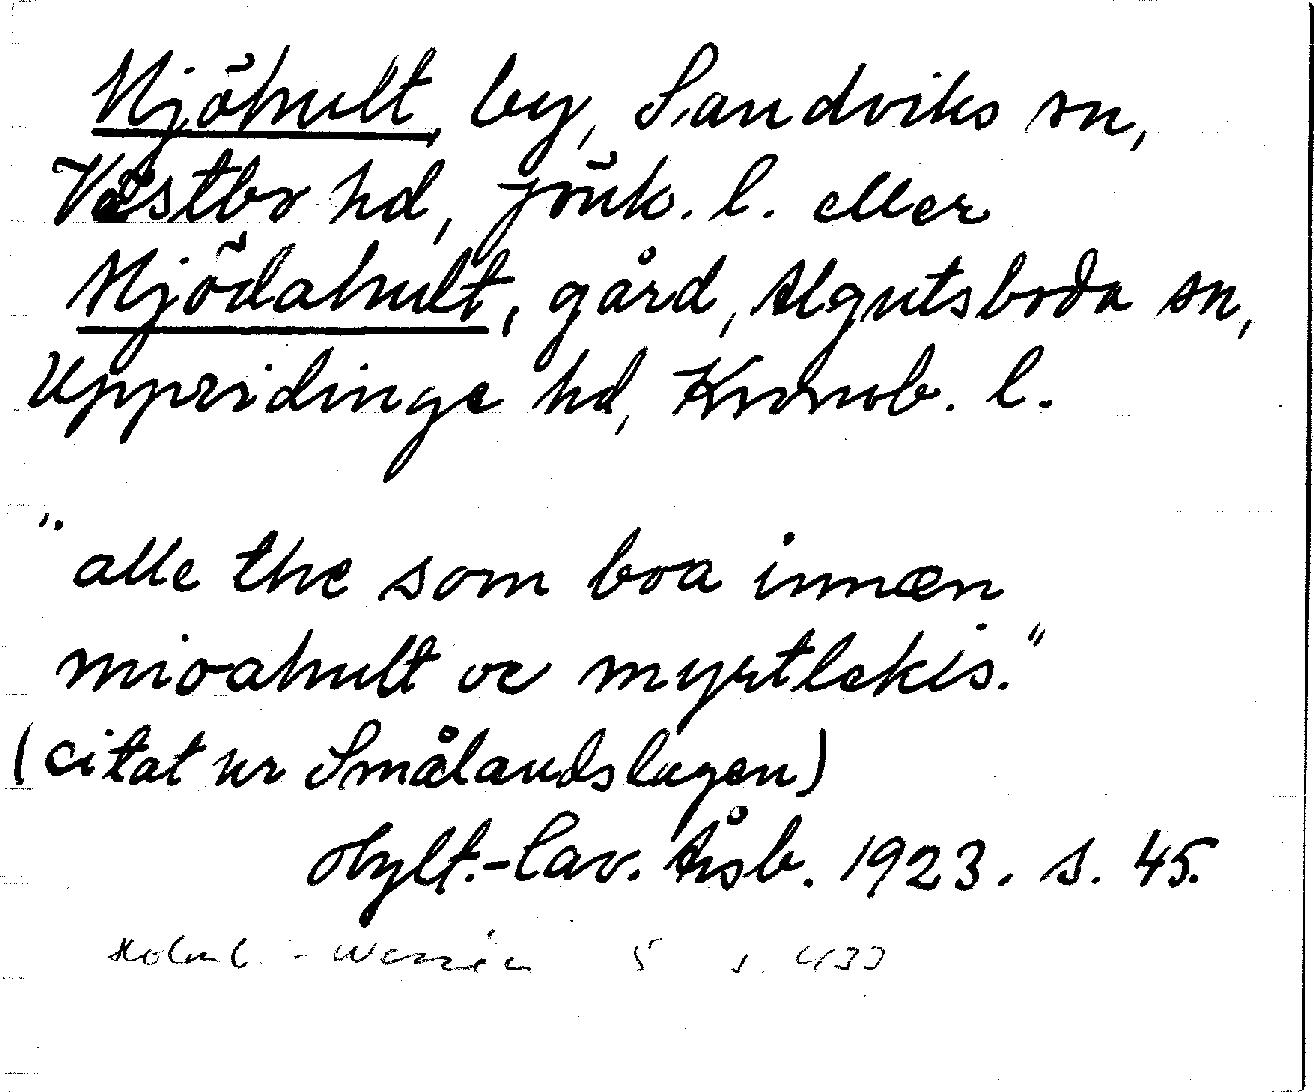 Mjöhult, by, Sandviks sn,
Västbo hd, Jönk. l. eller
Mjödahult, gård, Algutsboda sn,
Uppvidinge hd, Kronob. l.
"alle the som boa innæn
mioahult oc myrtlekis."
(citat ur Smålandslagen)
Hylt.-Cav. Årsb. 1923. s. 45.
Holmb. - Wessén 5 s. 433